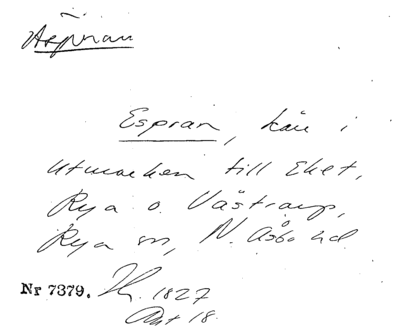 Äspran
Espran, kärr i
utmarken till Eket,
Rya o. Västraup,
Rya sn, N. Åsbo hd
Nr 7379. 1827
Akt 18.